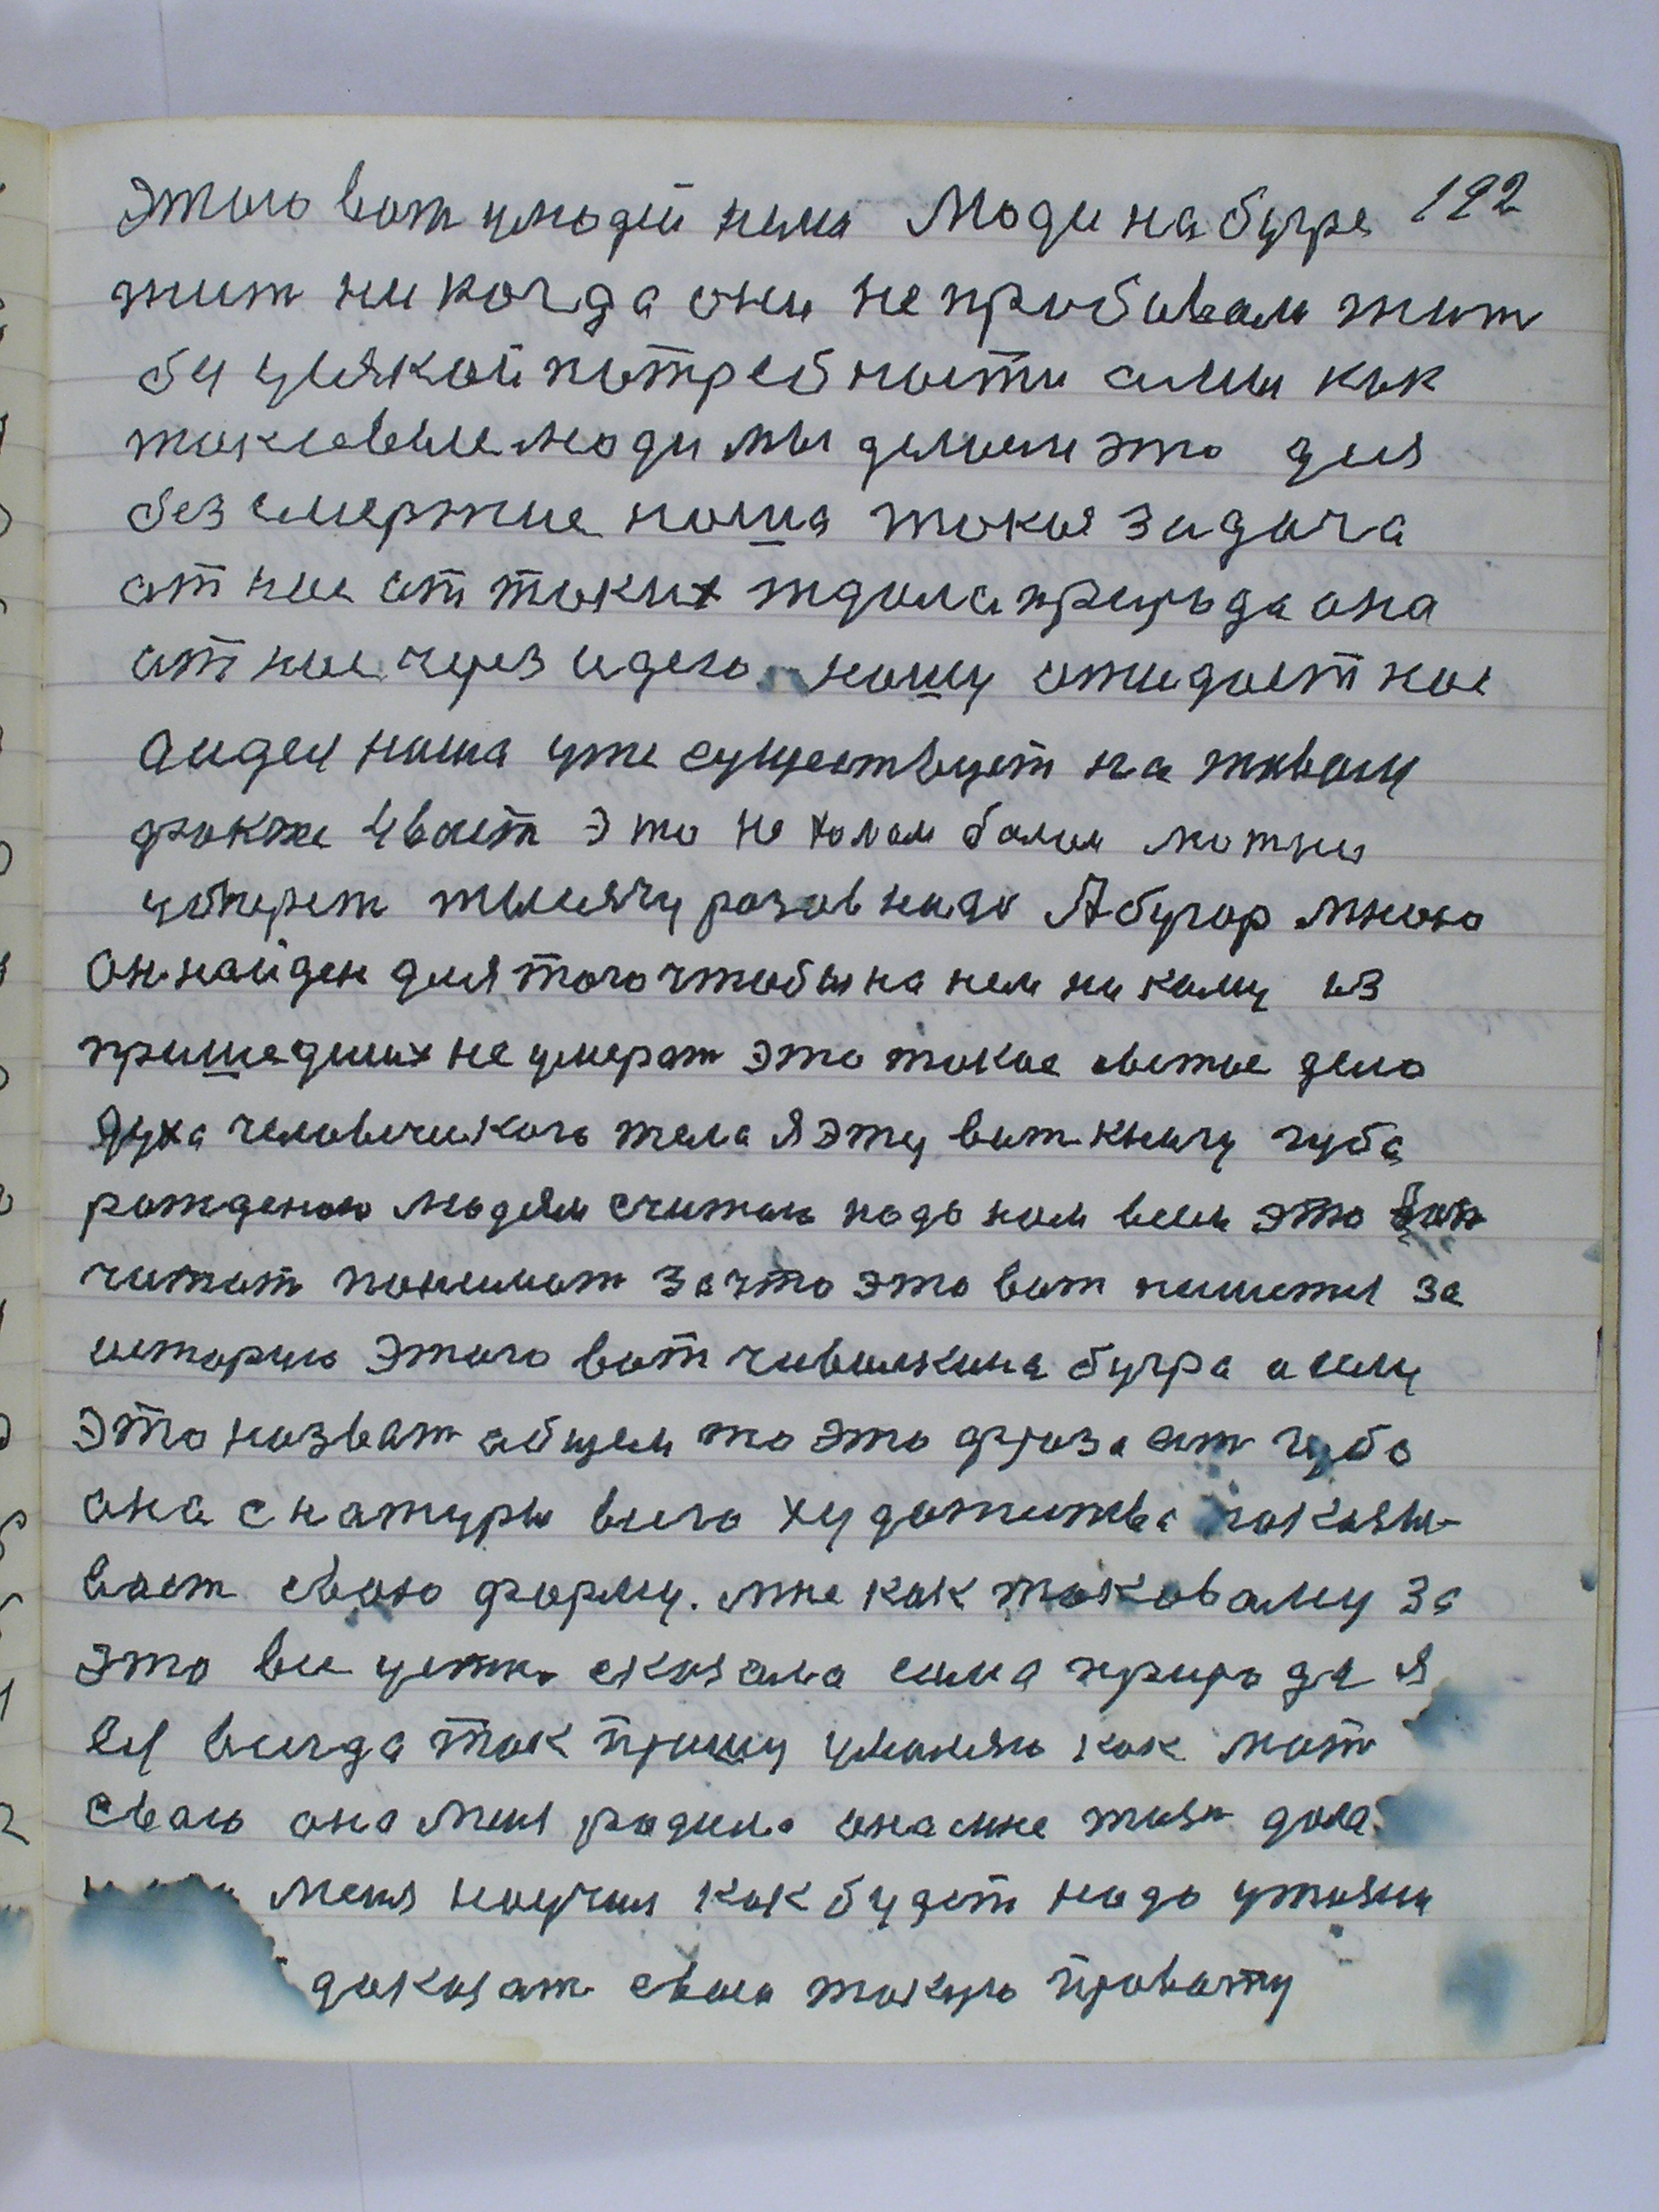 этого вот улюдей нема Люди на бугре 192
жит ни когда они не пробивали жит
бу усякой потребности сами как
таковые люди мы делаем это для
безсмертие наша такая задача
от нас от таких ждала природа она
от нас через идею нашу ожидает нас
Аидея наша уже существует на живому
факте убает это не холам балам
уберет тысячу разов надо Абугор мною
Он найден для того чтобы на нем ни каму из
пришедших не умерат это такое светое дело
Духа человеческого тела Я эту вот книгу чуба
рождению людям считаю надо нам всем это
читат понимат за что это вот пишется за
историю этого вот чивилкина бугра а если
это назват общем то это фраза ат чуба
она с натуры всего художитва паказы-
вает сваю форму. мне как таковаму за
это все устно сказала сама природа я
её висгда так прошу умаляю как мат
сваю она меня радила она мне жизн дала
меня научил как будет надо у жизни
доказат сваю такую правоту